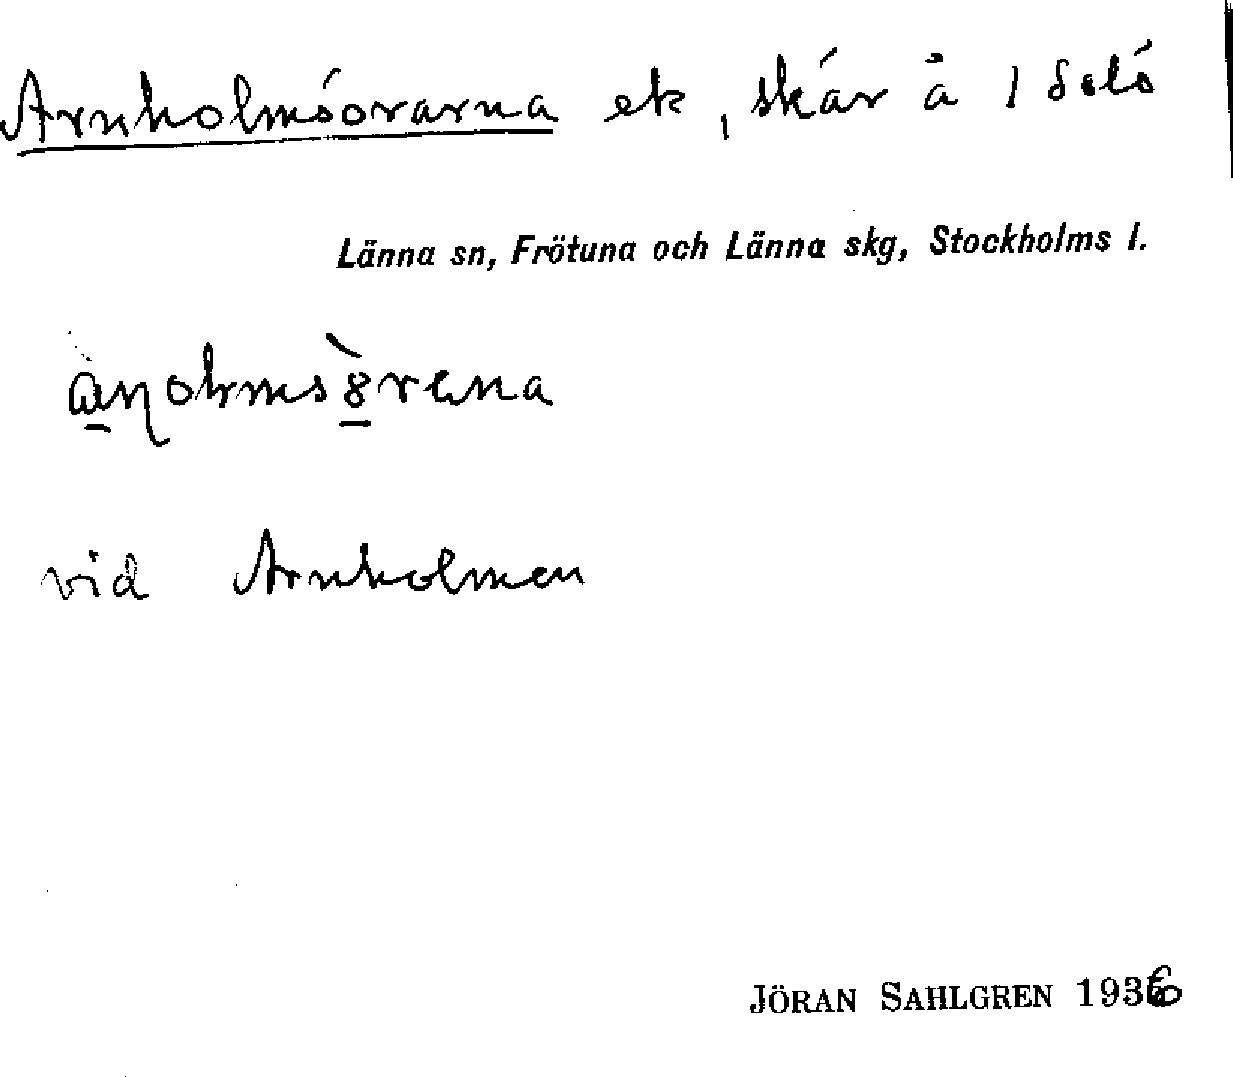 Arnholmsörarna ek, skär å 1 Solö
Länna sn, Frötuna och Länna skg, Stockholms l.
vid Arnholmen
JÖRAN SAHLGREN 1936